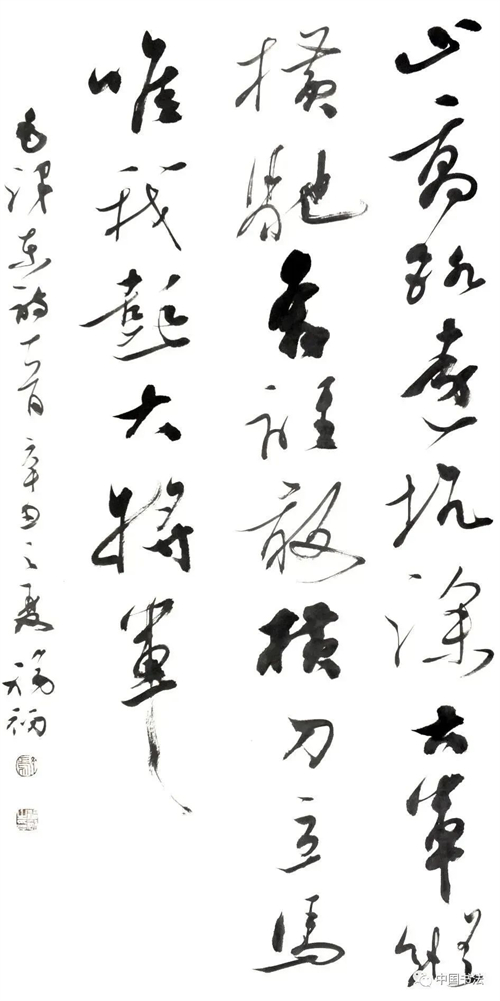 山高路遠坑深大軍縱
橫馳奔誰敢橫刀立馬
唯我彭大將軍
毛澤東詩一首 辛丑之夏
中国书法